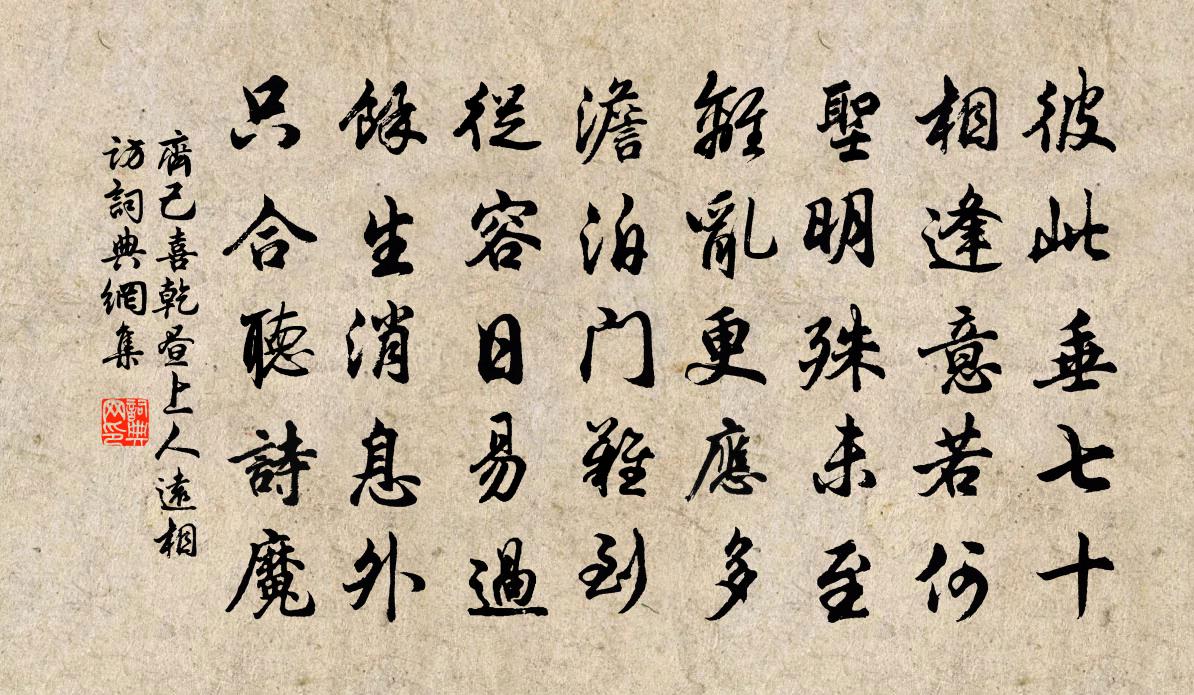 彼此垂七十
相逢意若何
聖明殊未至
離亂更應多
澹泊門難到
從容日易過
餘生消息外
只合聽詩魔
齊己喜乾晝上人遠相
訪詞典網集
詞典
网印